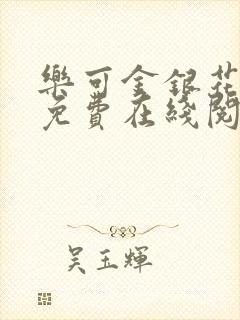 樂可金銀花
免費在綫閱
吳玉輝